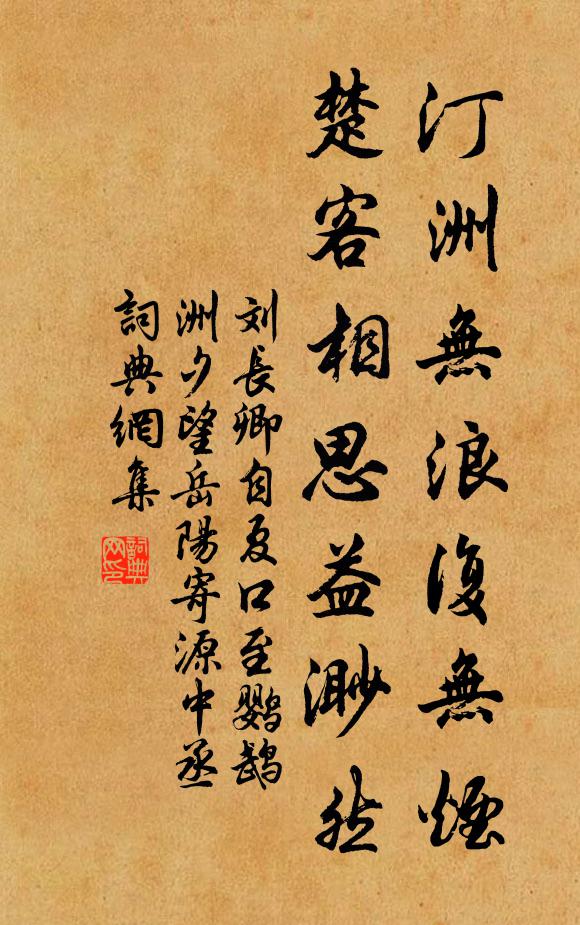 汀洲無浪復無煙
楚客相思益渺然
刘長卿自夏口至鹦鹉
洲夕望岳陽寄源中丞
詞典網集
詞典
网印